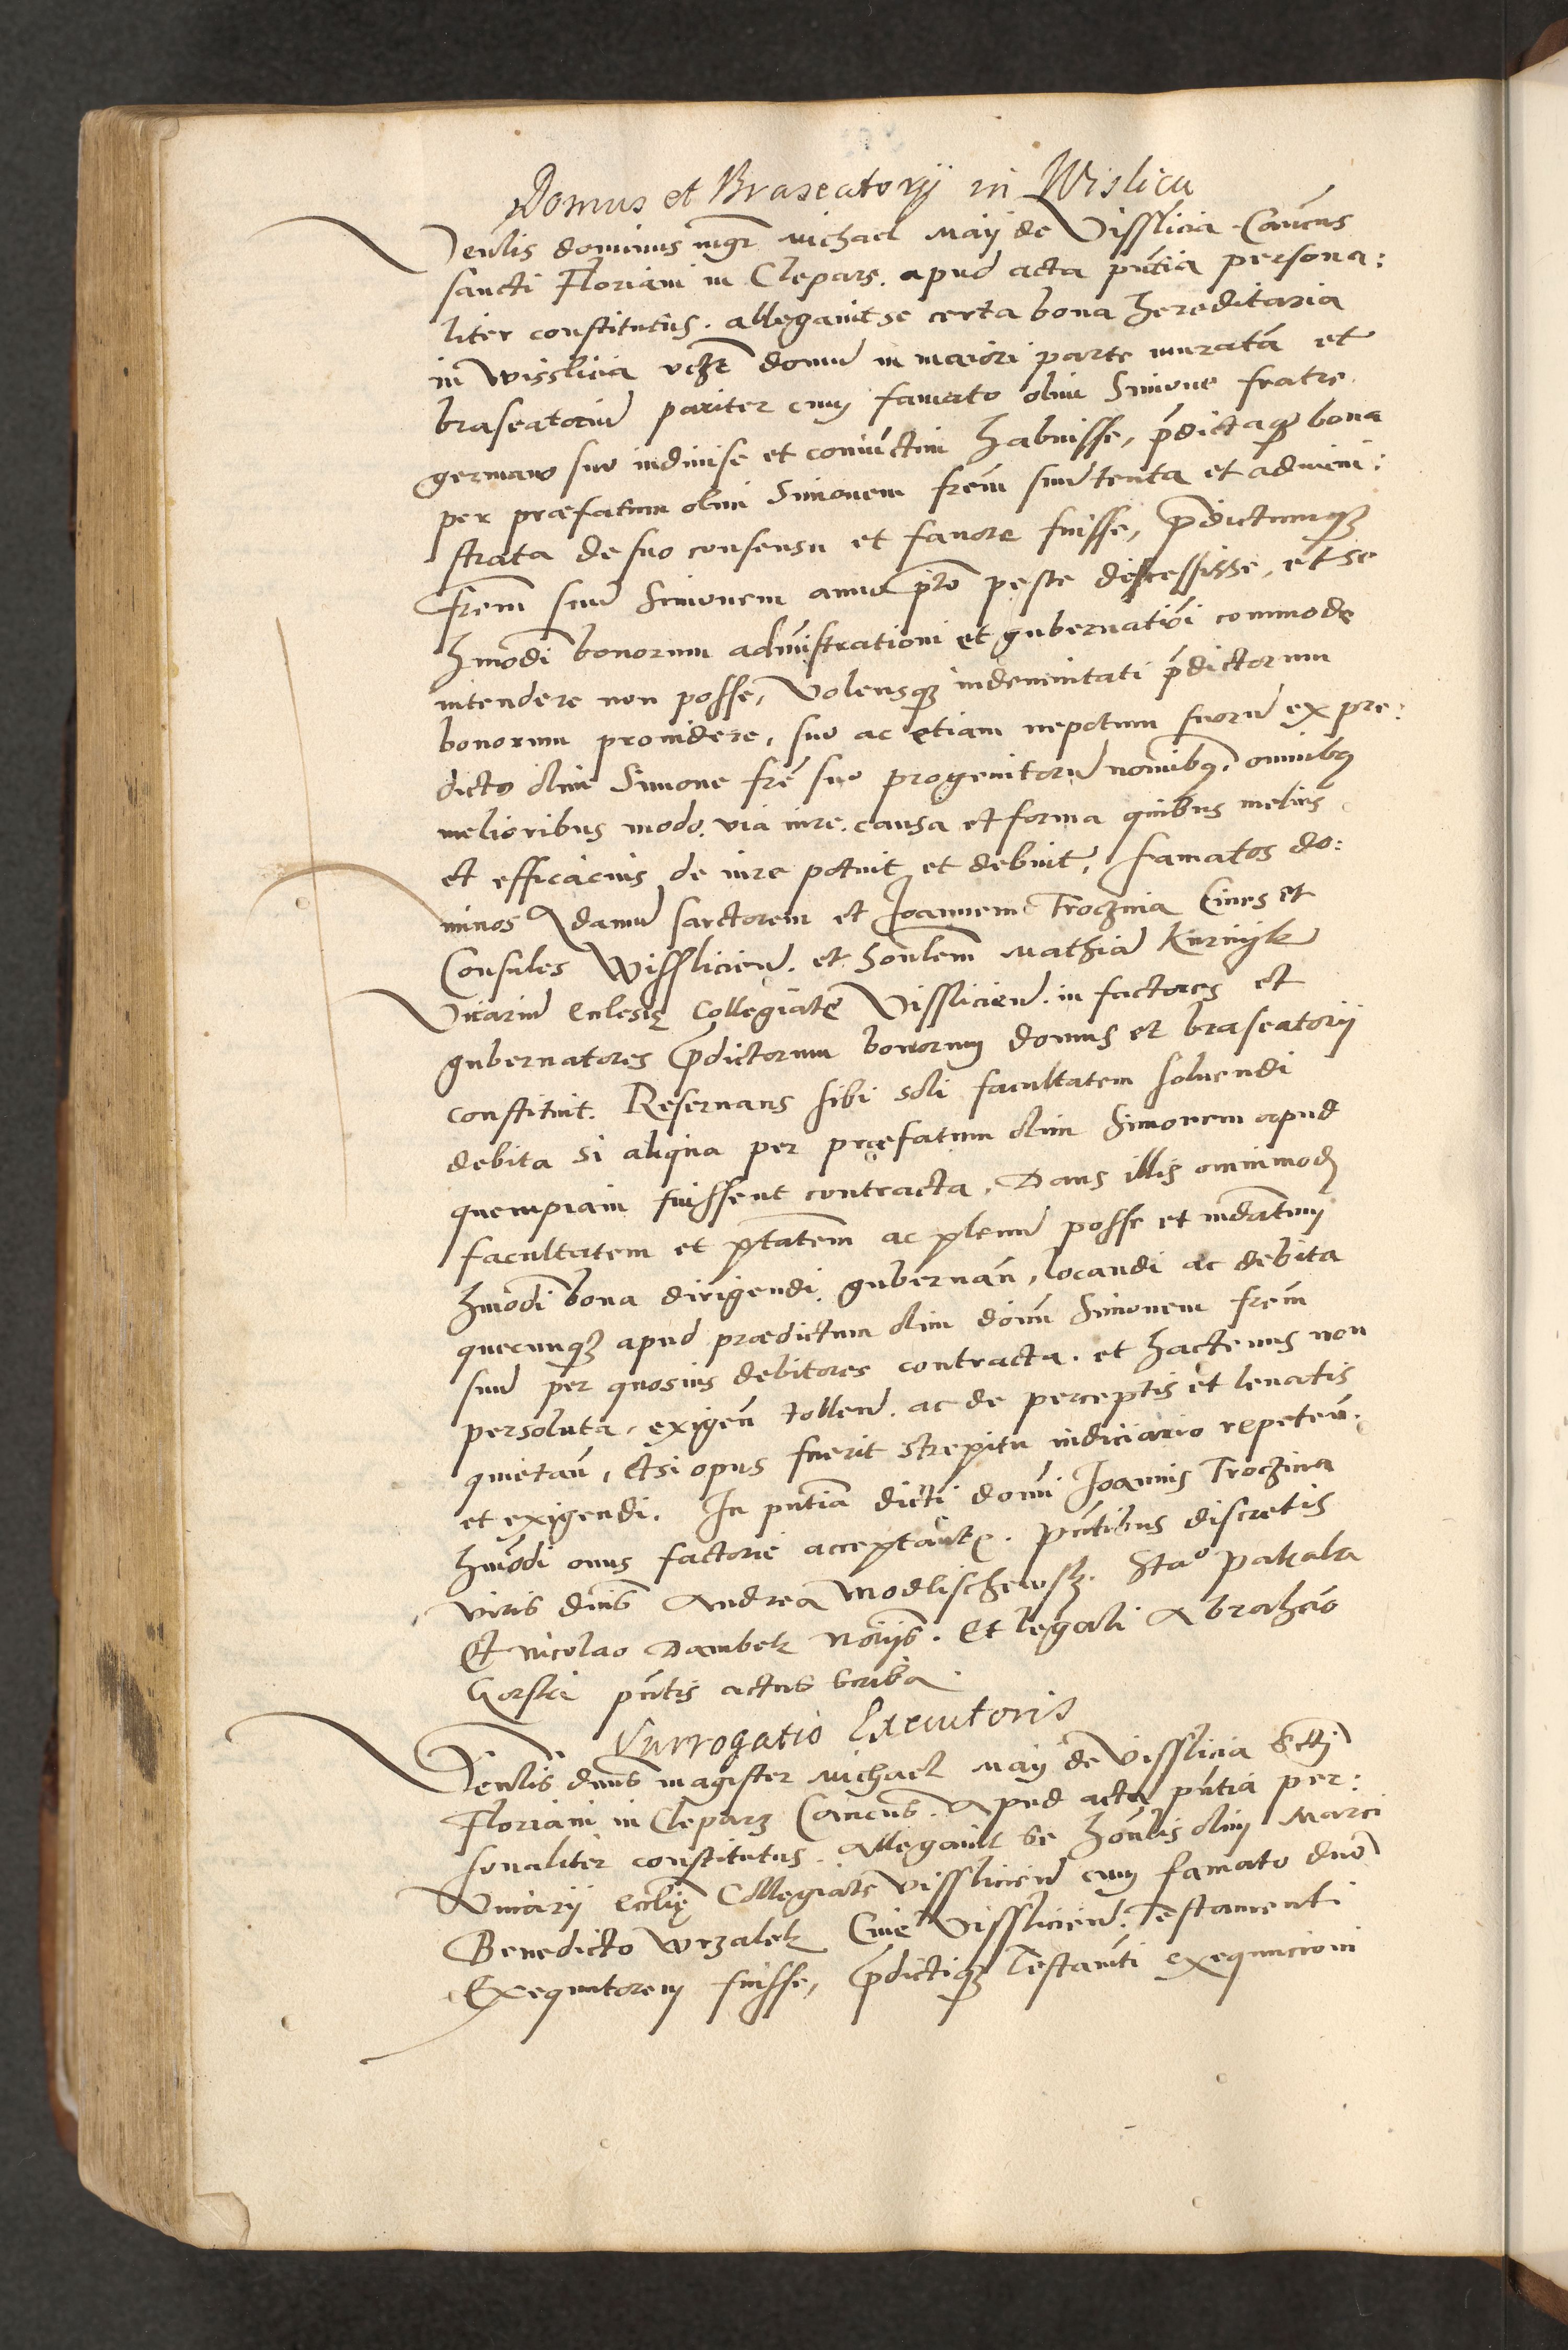 Domus et Braseatorij in Wislicia
Venlis dominus mgr Michael Maij de Visslicia Canˉcus
sancti Floriani in Clepars. apud acta pntia persona:
liter constitutus. allegavit se certa bona hereditaria
in Wisslicia vcʒt domu̅ in maiori parte murata̅ et
braseatoriu̅ pariter cum famato olim Simone fratre
germano suo indiuise et coniu̅ctim habuisse, p̅dictaqʒ bona
per praefatum olim Simonem fre̅m suu̅ tenta et admini:
strata de suo consensu et fauore fuisse, p̅dictumqʒ
fre̅m suu̅ Simonem anno pˉto peste decessisse, et se
hmo̅di bonorum admi̅strationi et gubernatio̅i commode
intendere non posse, Volensqʒ indemnitati p̅dictorum
bonorum prouidere, suo ac etiam nepotum suoru̅ ex pre:
dicto olim Simone fre̅ suo progenitoru̅ no̅ibqʒ. omnibqʒ
melioribus modo. via iure. causa et forma quibus melius
et efficacius de iure potuit et debuit, famatos do:
minos Adamu̅ sartorem et Joannem Trocʒina Ciues et
Consules Wisslicien̅. et hon̅lem Mathia̅ Kurnijk
Vicariu̅ Ecclesię Collegiatę Visslicien̅. in factores et
gubernatores p̅dictorum bonorum domus et braseatorij
constituit. Reseruans sibi soli facultatem soluendi
debita si aliqua per praefatum olim Simonem apud
quempiam fuissent contracta. Dans illis omnimodˉ
facultatem et p̅tatem ac plenu̅ posse et mda̅tum
hmo̅di bona dirigendi. gubernan̅, locandi ac debita
quecunqʒ apud praedictum olim do̅m Simonem fre̅m
suu̅ per quosuis debitores contracta. et hactenus non
persoluta, exigen̅ tollen̅. ac de perceptis et leuatis
quietan̅, Et si opus fuerit strepitu iudiciario repeten̅.
et exigendi. In pn̅tia dicti do̅ni Joannis Trocʒina
hmo̅di onus factorie acceptante. pn̅tibus discretis
viris dnis Andrea Modlischewsʒ. Stao Pakala
Et Nicolao Dambek No̅rijs. Et legali Abraha̅o
Gorski pn̅tis actus scriba.
Surrogatio Executoris
Venlis dnus magister Michael Maij de Visslicia Scti
Floriani in Cleparʒ Cano̅cus. Apud acta pn̅tia per:
sonaliter constitutus. Allegauit se hon̅lis olim Marci
Vicarij eccl̅ię Collegiate Visslicien̅ cum famato dno
Benedicto Wrzalek Ciue Visslicien̅. Testamenti
Exequutorem fuisse, p̅dictiqʒ Testam̅ti exequucioni